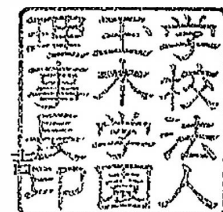 学校法人
玉木学園
理事長印